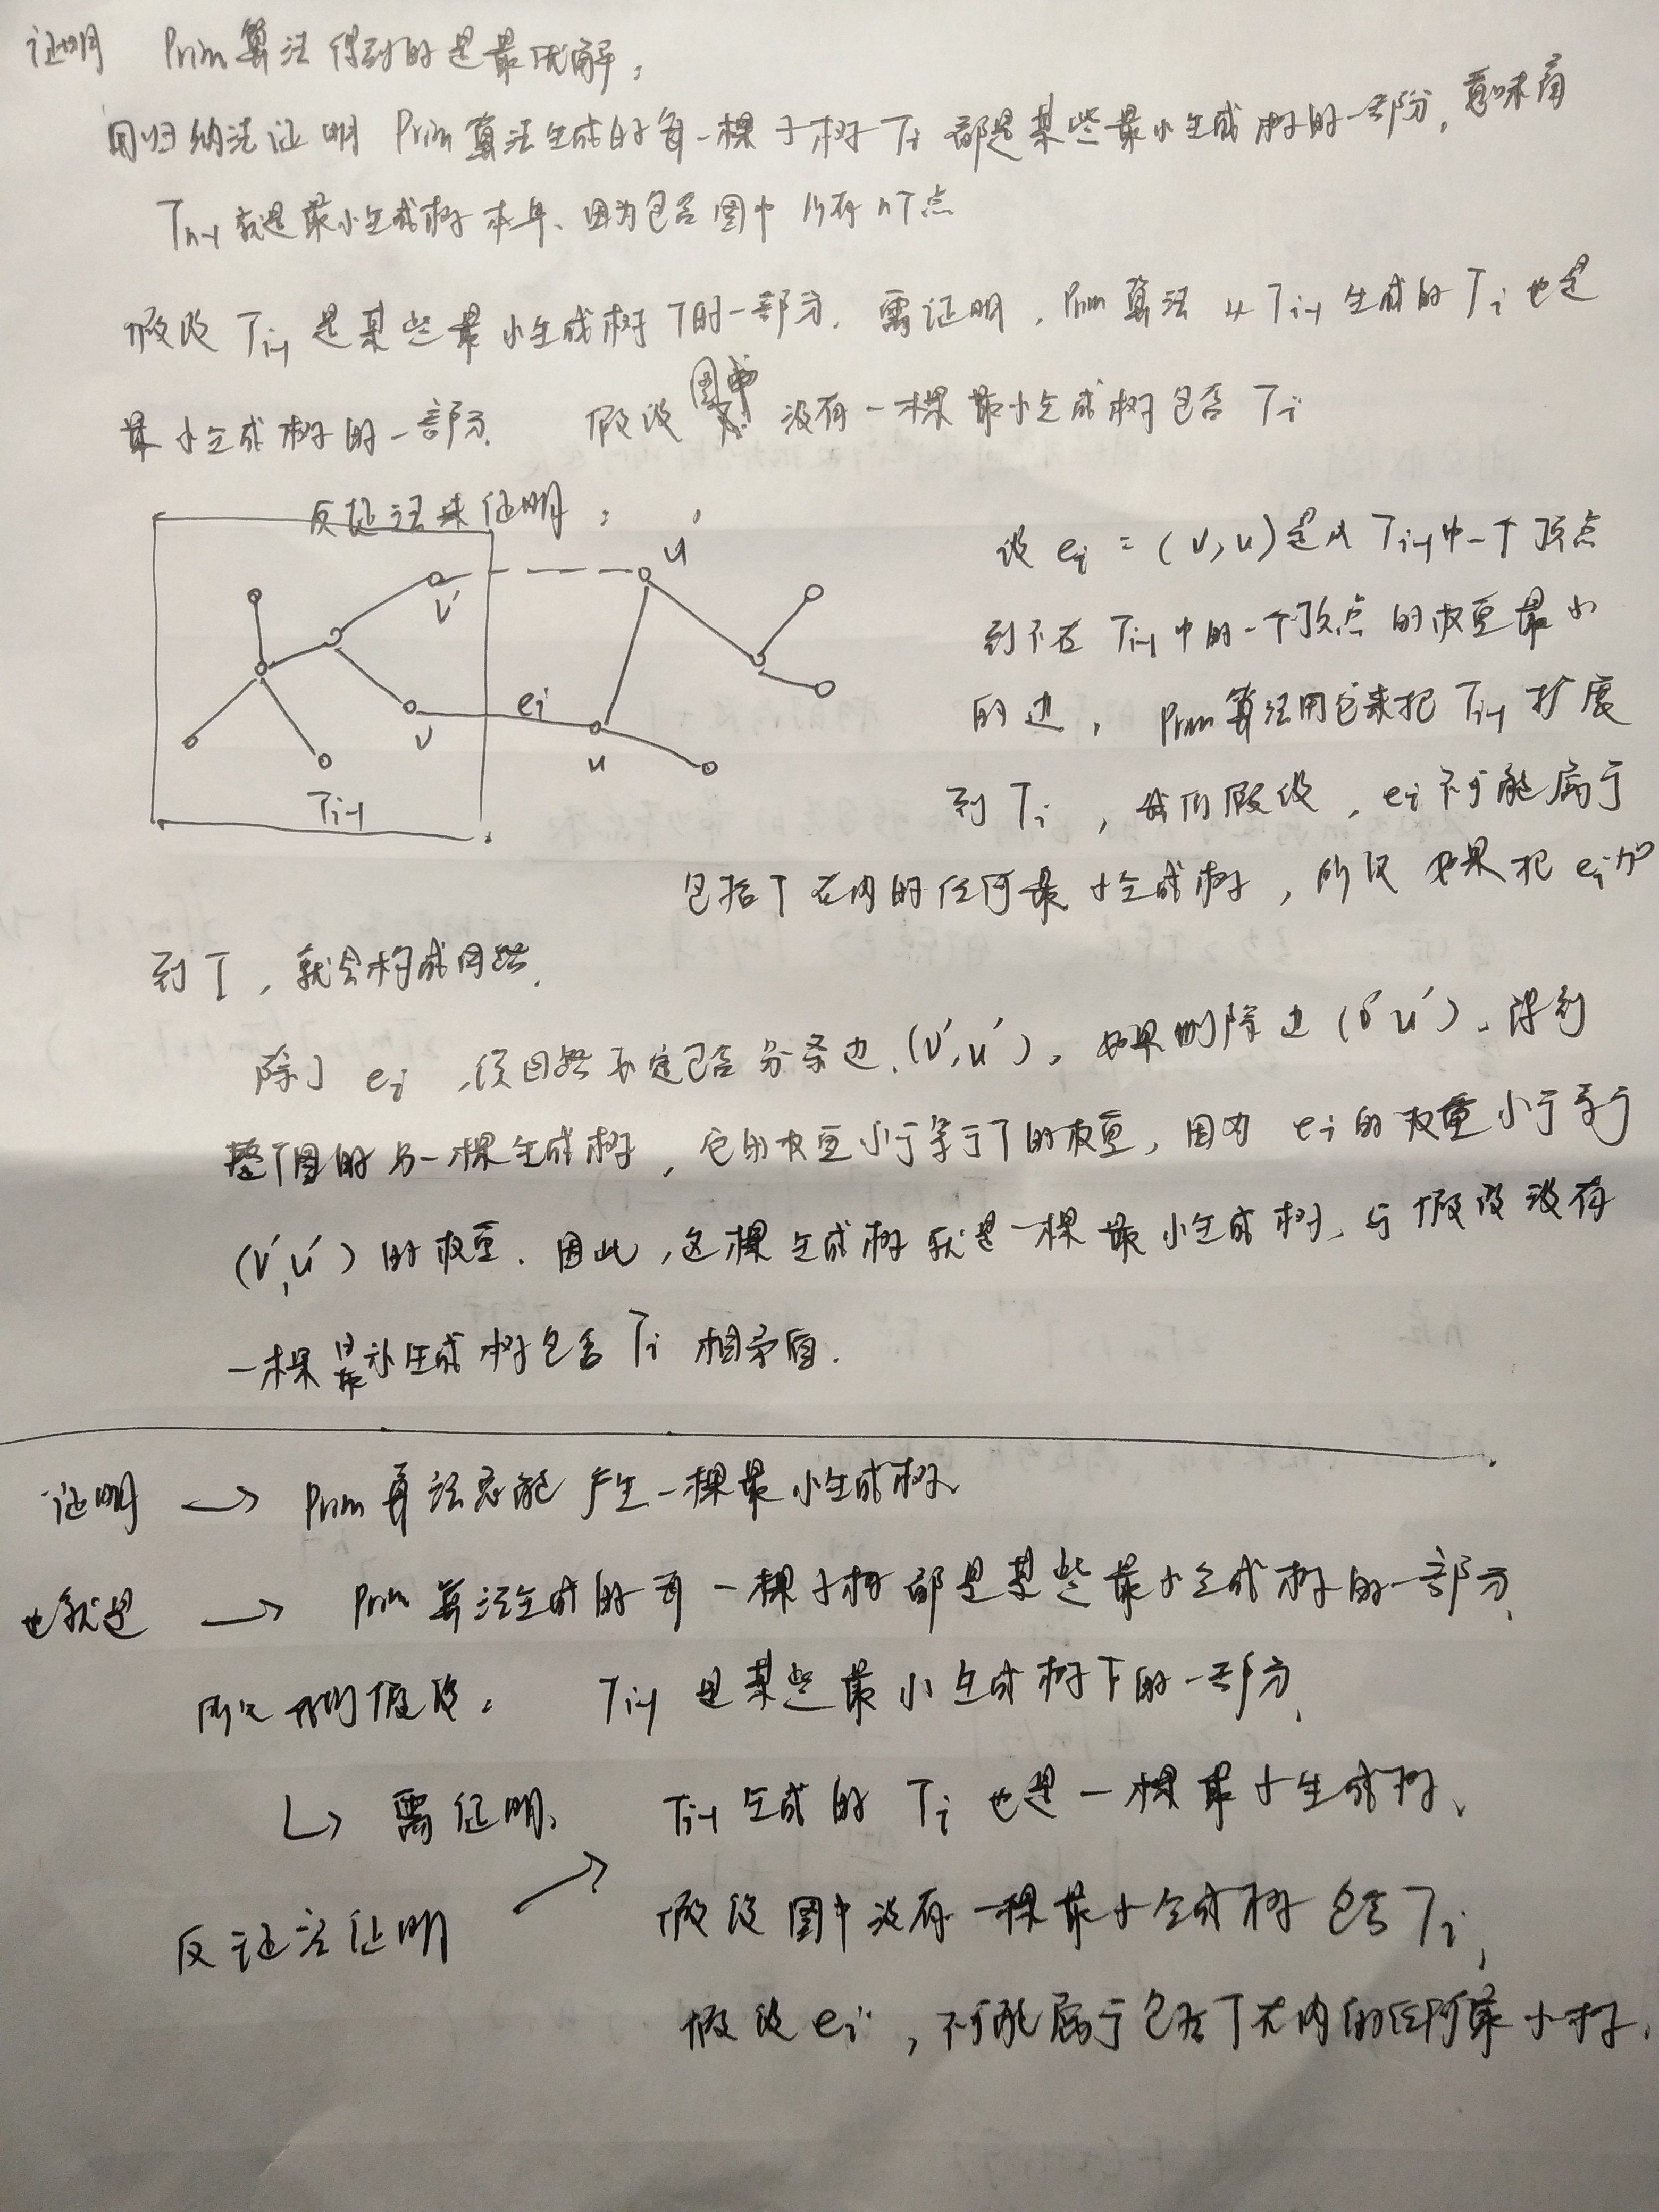 证明 Prim算法得到的是最优解:
用归纳法证明 Prim算法生成的每一棵子树Ti 都是某些最小生成树的一部分,意味着
Tn-1就是最小生成树本身、因为包含图中所有n个点
假设 Ti-1 是某些最小生成树T的一部分. 需证明,Prim算法从Ti-1生成的Ti也是
最小生成树的一部分. 假设图中没有一棵最小生成树包含Ti
反证法来证明:
设 ei = (v,u)是从Ti-1中一个顶点
到不在Ti-1中的一个顶点的权重最小
的边, Prim算法用它来把Ti-1扩展
到Ti,我们假设,ei不可能属于
包括T在内的任何最小生成树,所以如果把ei加
到T,就会构成回路.
v'
u'
ei
v
u
Ti-1
除了ei,该回路一定包含另条边.(v',u'). 如果删除边(v'u')、得到
整个图的另一棵生成树,它的权重小于等于T的权重,因为ei的权重小于等于
(v',u')的权重. 因此,这棵生成树就是一棵最小生成树、与假设没有
一棵最小生成树包含Ti相矛盾.
证明 → Prim算法总能产生一棵最小生成树.
也就是 → Prim算法生成的每一棵子树都是某些最小生成树的一部分.
所以我们假设: Ti-1是某些最小生成树T的一部分.
↳ 需证明: Ti-1生成的Ti也是一棵最小生成树、
反证法证明 ↗ 假设图中没有一棵最小生成树包含Ti,
假设ei,不可能属于包括T在内的任何最小树.